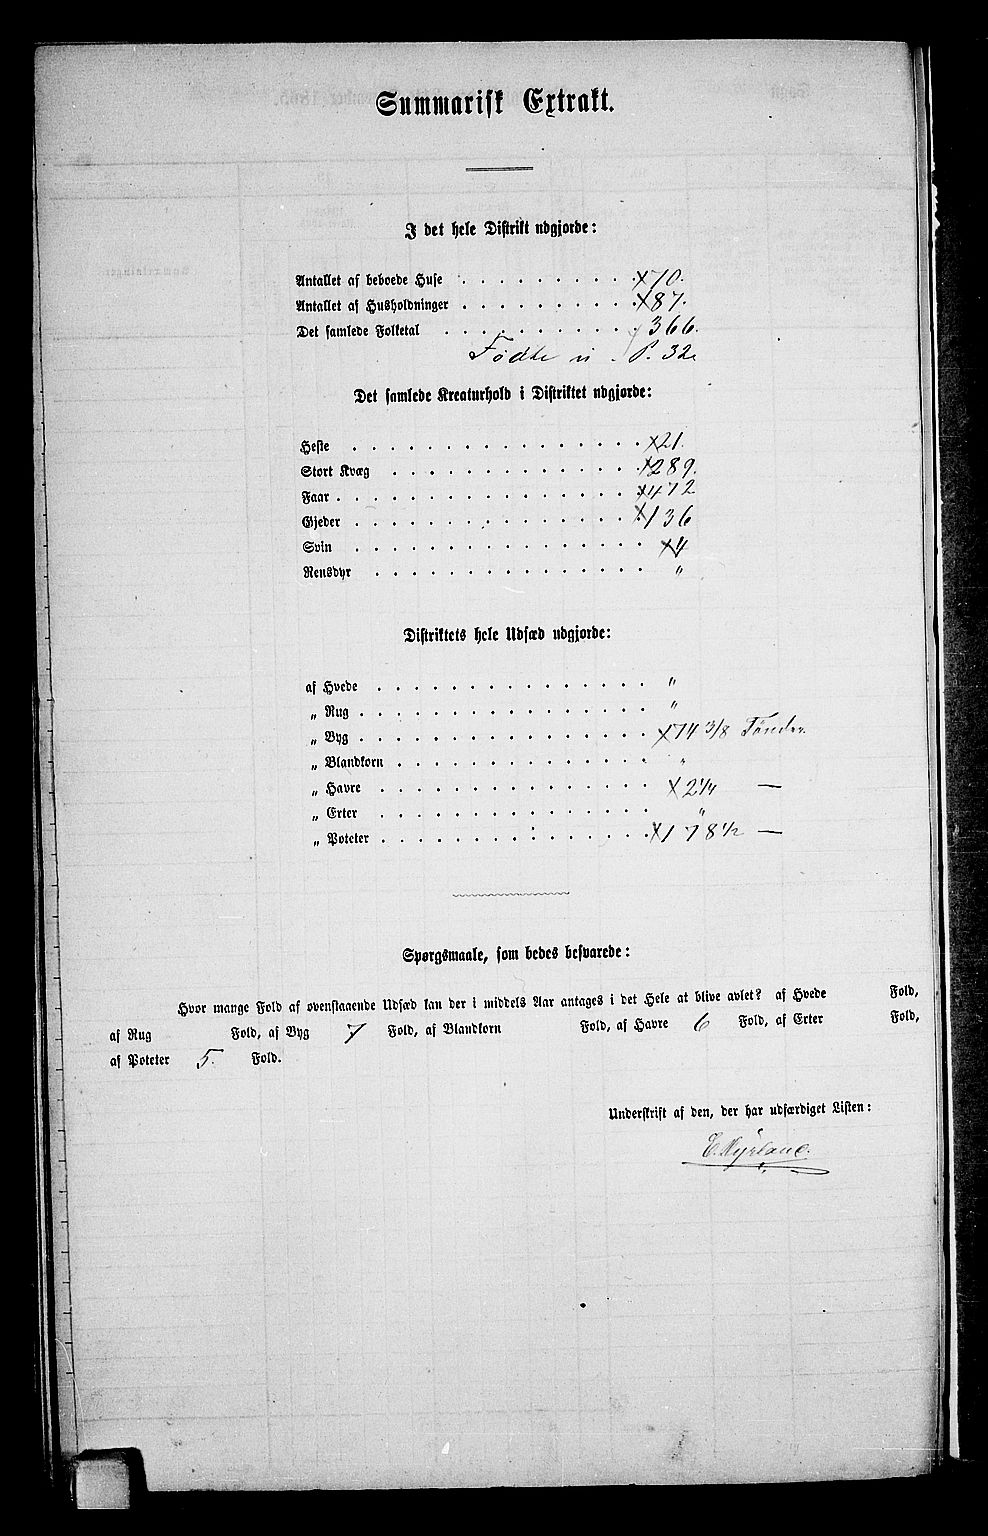 Summarisk Extrakt.
I det hele Distrikt udgjorde:
Antallet af beboede Huse . . . . . . . . . . 70.
Antallet af Husholdninger . . . . . . . . . . 87.
Det samlede Folketal . . . . . . . . . . 366.
Fødte i P. 32.
Det samlede Kreaturhold i Distriktet udgjorde:
Heste . . . . . . . . . . 21.
Stort Kvæg . . . . . . . . . . 289.
Faar . . . . . . . . . . 472
Gjeder . . . . . . . . . . 136
Svin . . . . . . . . . . 4
Rensdyr . . . . . . . . . . „
Distriktets hele Udsæd udgjorde:
af Hvede . . . . . . . . . . „
„ Rug . . . . . . . . . . „
„ Byg . . . . . . . . . . 74 3/8 Tønder.
„ Blandkorn . . . . . . . . . . „
„ Havre . . . . . . . . . . 2 1/4 —
„ Erter . . . . . . . . . . „
„ Poteter . . . . . . . . . . 178 1/2 —
Spørgsmaale, som bedes besvarede:
Hvor mange Fold af ovenstaaende Udsæd kan der i middels Aar antages i det Hele at blive avlet? af Hvede Fold,
af Rug Fold, af Byg 7 Fold, af Blandkorn Fold, af Havre 6 Fold, af Erter Fold,
af Poteter 5. Fold.
Underskrift af den, der har udfærdiget Listen: